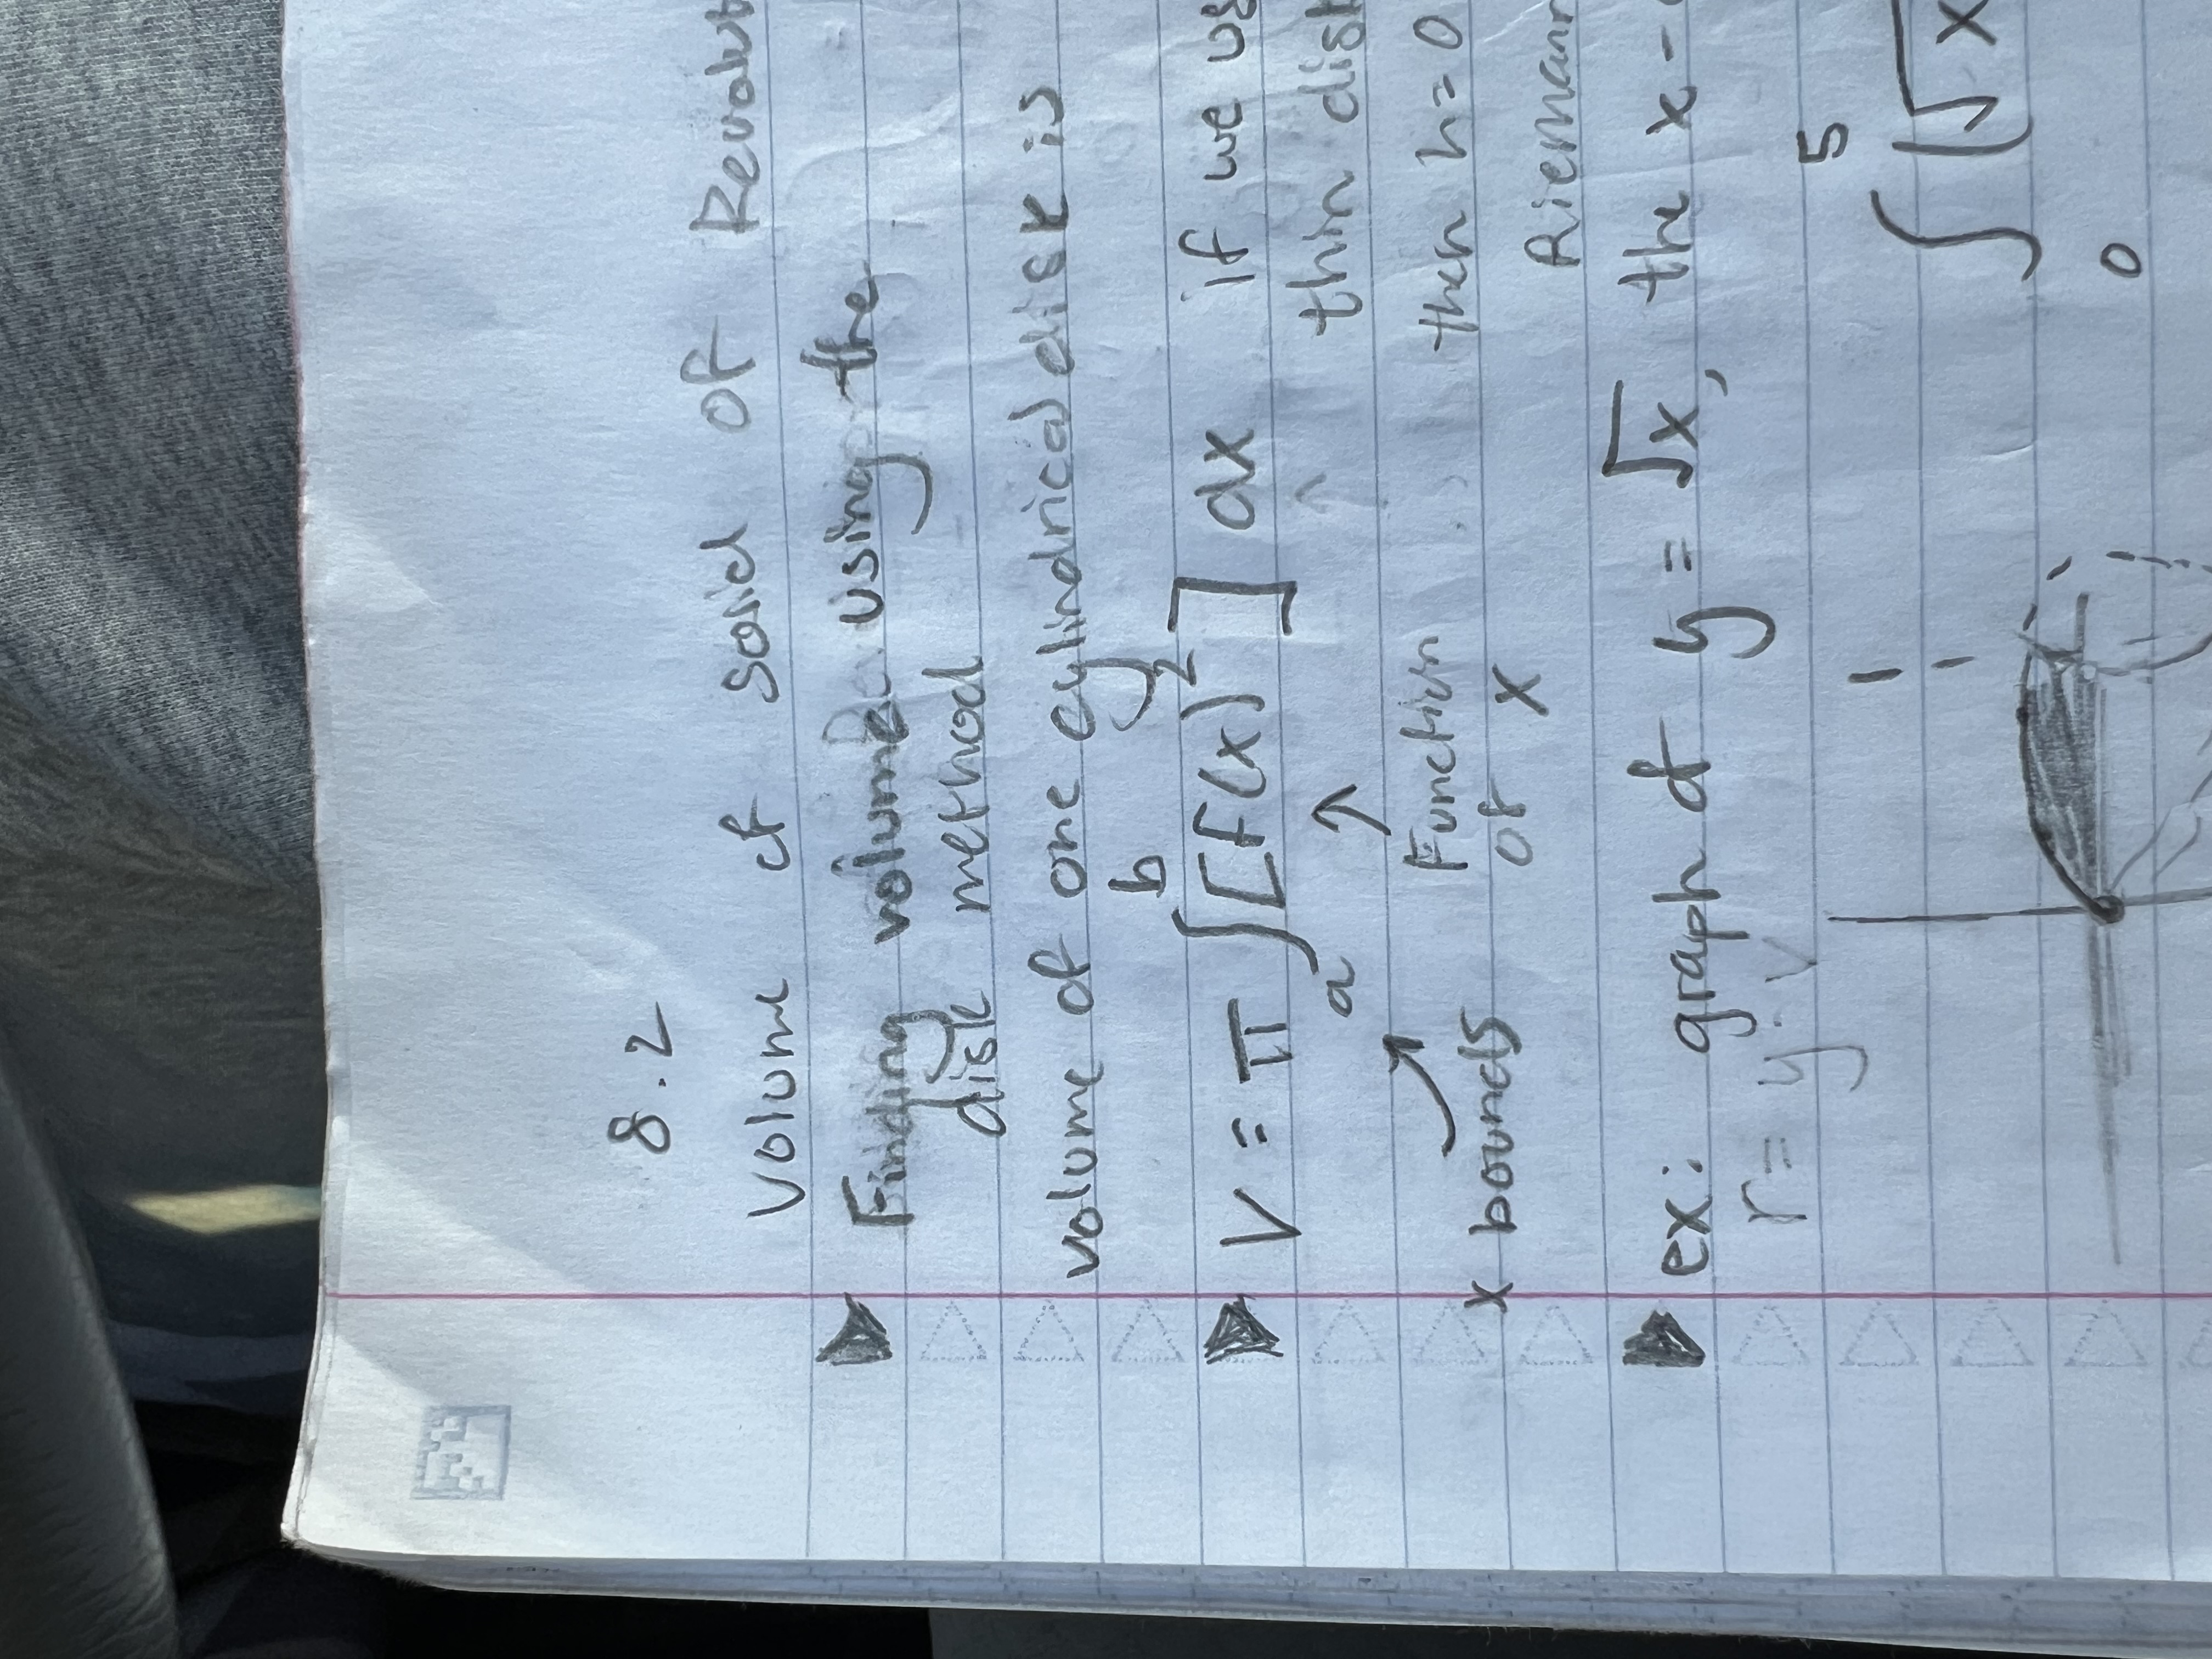 8.2
Volume of solid of Revolut
Finding volume using the
disk method
volume of one cylindrical disk is
V = π ∫ₐᵇ [f(x)²] dx if we us
thin disk
x bounds Function then h=0
of x Riemann
ex: graph of y = √x, the x-
r = y
5
∫ (√x
0